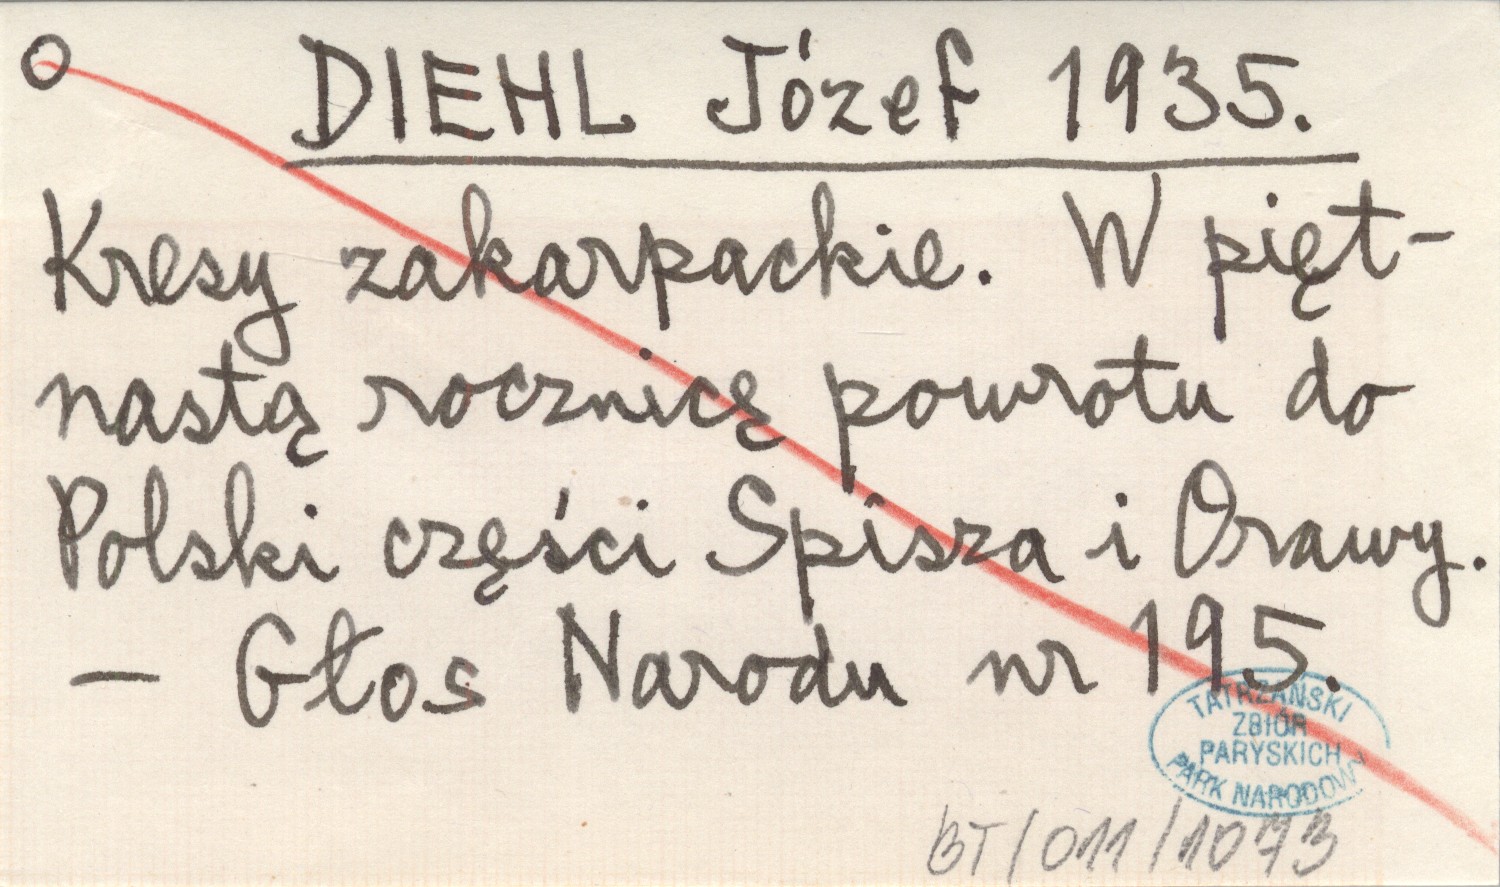 O DIEHL Józef 1935.
Kresy zakarpackie. W pięt-
nastą rocznicę powrotu do
Polski części Spisza i Orawy.
— Głos Narodu nr 195.
TATRZAŃSKI
ZBIÓR
PARYSKICH
PARK NARODOWY
BT/011/1073